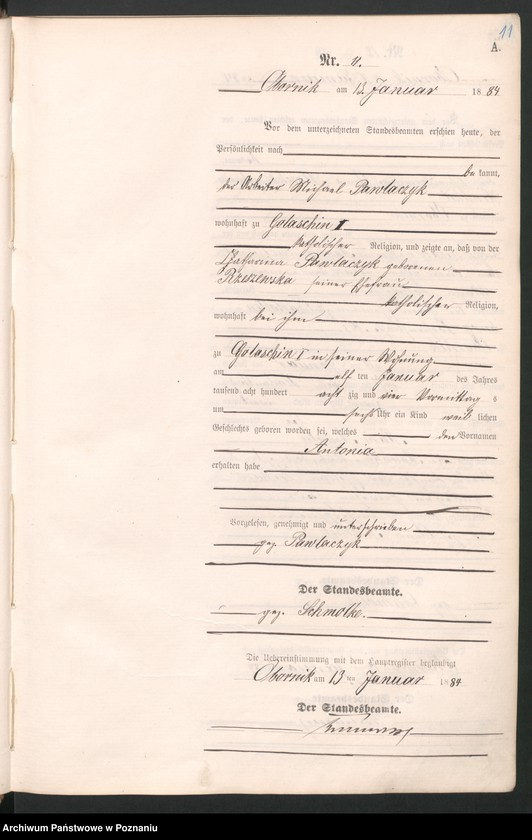 11
A.
Nr. 11.
Obornik am 13 Januar 1884
Vor dem unterzeichneten Standesbeamten erschien heute, der
Persönlichkeit nach
bekannt,
der Arbeiter Michael Pawlaczyk
wohnhaft zu Golaschin I
katholischer Religion, und zeigte an, daß von der
Katharina Pawlaczyk geborenen
Rzeszewska seiner Ehefrau
katholischer Religion,
wohnhaft bei ihm
zu Golaschin I in seiner Wohnung
am elf ten Januar des Jahres
tausend acht hundert acht zig und vier Vormittag s
um sechs Uhr ein Kind weib lichen
Geschlechts geboren worden sei, welches den Vornamen
Antonia
erhalten habe
Vorgelesen, genehmigt und unterschrieben
gez. Pawlaczyk
Der Standesbeamte.
gez. Schmolke.
Die Uebereinstimmung mit dem Hauptregister beglaubigt
Obornik am 13 ten Januar 1884
Der Standesbeamte.
Archiwum Państwowe w Poznaniu